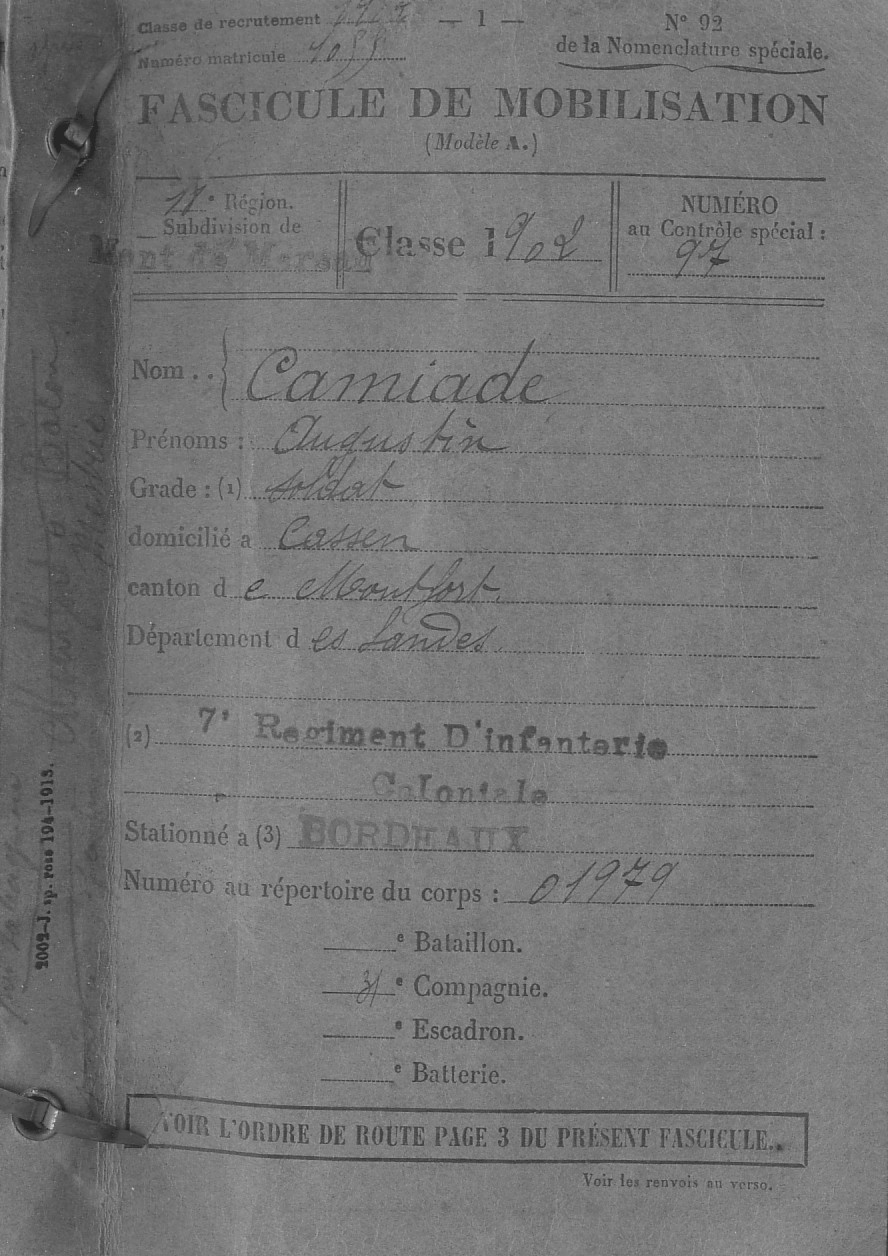 Classe de recrutement
— 1 —
N° 92
de la Nomenclature spéciale.
Numéro matricule 1055
FASCICULE DE MOBILISATION
(Modèle A.)
Région.
Subdivision de
Mont de Marsan
Classe 1902
NUMÉRO
au Contrôle spécial :
97
Nom .. Camiade
Prénoms : Augustin
Grade : (1) soldat
domicilié a Cassen
canton d e Montfort.
Département d es Landes.
(2) 7e Regiment D'infanterie
Coloniale
Stationné a (3) BORDEAUX
Numéro au répertoire du corps : 01979
e Bataillon.
e Compagnie.
e Escadron.
e Batterie.
VOIR L'ORDRE DE ROUTE PAGE 3 DU PRÉSENT FASCICULE.
Voir les renvois au verso.
2002-J. sp. rose 194-1913.